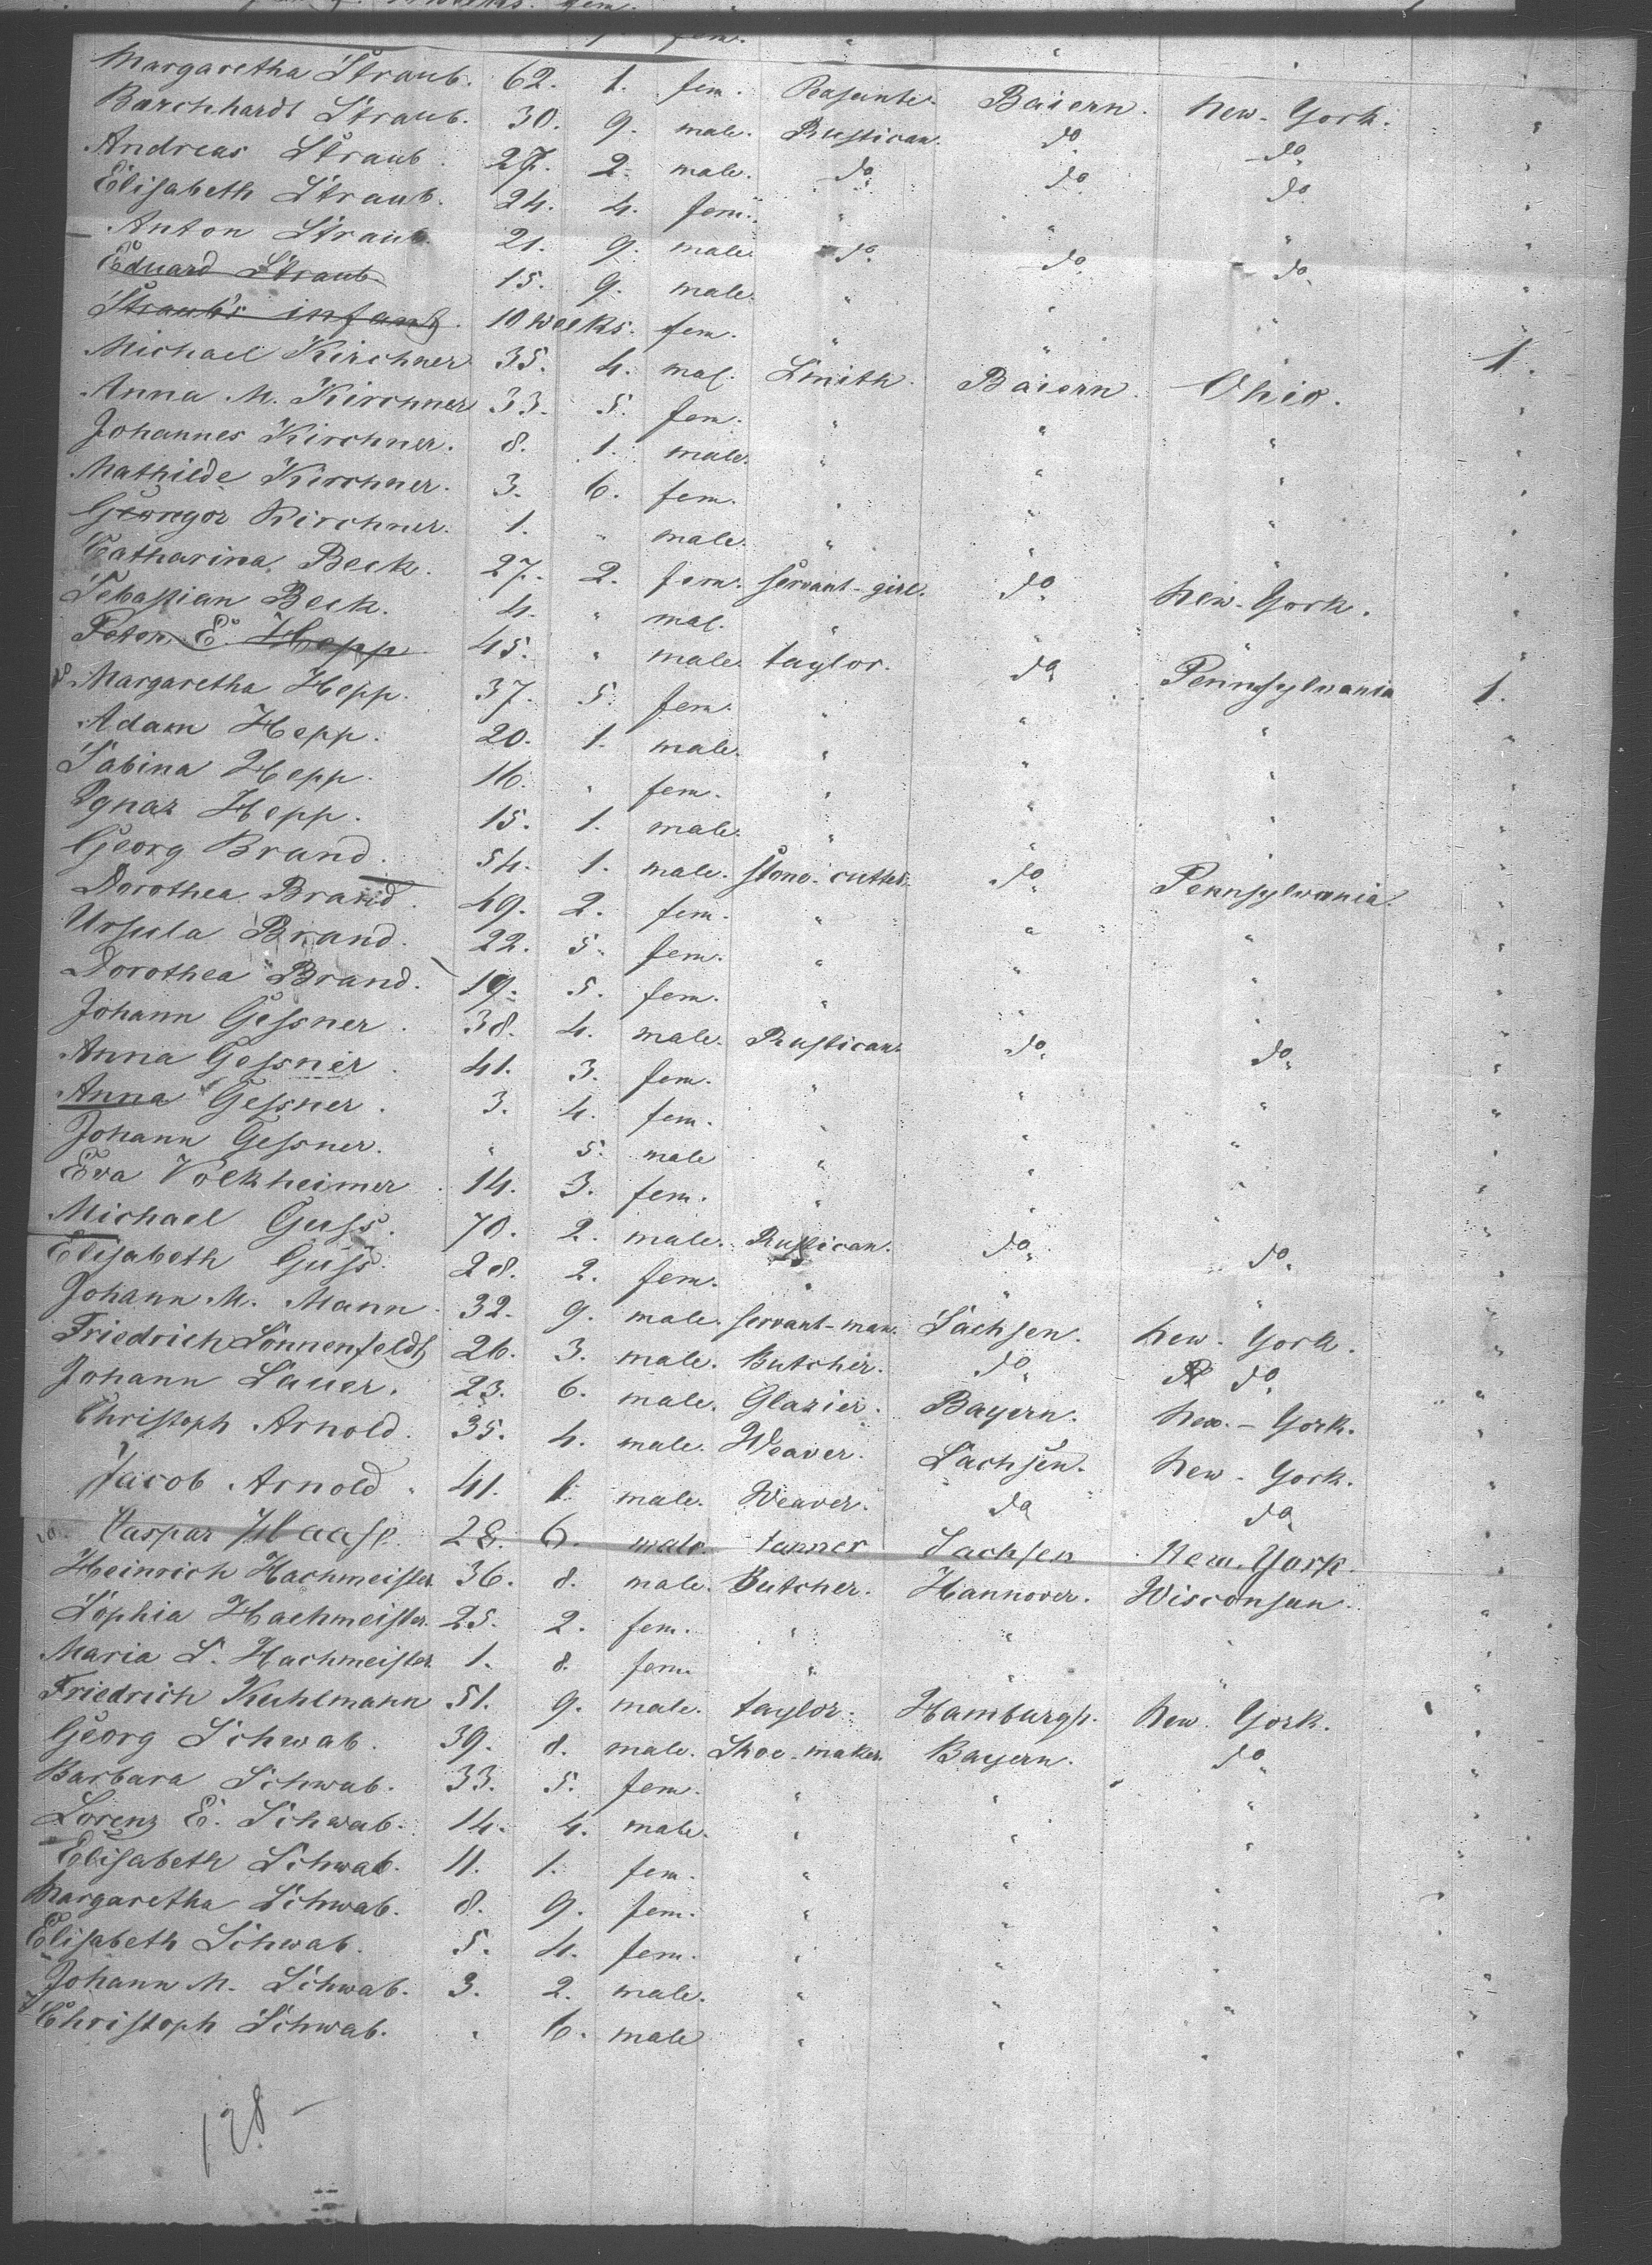 Margaretha Straub. 62. 1. fem. Peasante. Baiern. New-York.
Barchhardt Straub. 30. 9. male. Rustican. do do
Andreas Straub. 27. 2. male. do do do
Elisabeth Straub. 24. 4. fem. " " "
Anton Straub. 21. 9. male. do do do
Eduard Straub 15. 9. male. " " "
Straub's infant. 10 weeks. fem. " "
Michael Kirchner 35. 4. mal. Smith. Baiern. Ohio. 1.
Anna M. Kirchner 33. 5. fem. " " "
Johannes Kirchner. 8. 1. male. " " "
Mathilde Kirchner. 3. 6. fem. " " "
Kirchner. 1. " male. " "
Catharina Beck. 27. 2. fem. servant-girl. do New-York.
Sebastian Beck. 4. " mal. " " "
Peter E. Hepp 45. " male. taylor. do Pennsylvania 1.
Margaretha Hepp. 37. 5. fem. " " "
Adam Hepp. 20. 1. male. " " "
Sabina Hepp. 16. " fem. " " "
Ignaz Hepp. 15. 1. male. " " "
Georg Brand. 54. 1. male. stone-cutter. do Pennsylvania.
Dorothea Brand. 49. 2. fem. " " "
Ursula Brand. 22. 5. fem. " " "
Dorothea Brand. 19. 5. fem. " " "
Johann Gessner. 38. 4. male. Rustican. do do
Anna Gessner. 41. 3. fem. " " "
Anna Gessner. 3. 4. fem. " " "
Johann Gessner. " 5. male " " "
Eva Volkheimer. 14. 3. fem. " " "
Michael Guss. 70. 2. male. Rustican. do do
Elisabeth Guss. 28. 2. fem. " " "
Johann M. Mann. 32. 9. male. servant-man. Sachsen. New-York.
Friedrich Sonnenfeldt 26. 3. male. Butcher. do do
Johann Sauer. 23. 6. male. Glazier. Bayern. New-York.
Christoph Arnold. 35. 4. male. Weaver. Sachsen. New-York.
Jacob Arnold. 41. 1. male. Weaver. do do
Caspar Haase. 28. 6. male. tanner Sachsen New-York.
Heinrich Hachmeister. 36. 8. male. Butcher. Hannover. Wisconsan.
Sophia Hachmeister. 25. 2. fem. " " "
Maria S. Hachmeister. 1. 8. fem. " " "
Friedrich Kuhlmann 51. 9. male. taylor. Hamburgh. New-York.
Georg Schwab. 39. 8. male. Shoe-maker. Bayern. do
Barbara Schwab. 33. 5. fem. " " "
Lorenz E. Schwab. 14. 4. male. " " "
Elisabeth Schwab. 11. 1. fem. " " "
Margaretha Schwab. 8. 9. fem. " " "
Elisabeth Schwab. 5. 4. fem. " " "
Johann M. Schwab. 3. 2. male. " " "
Christoph Schwab. " 6. male " " "
128